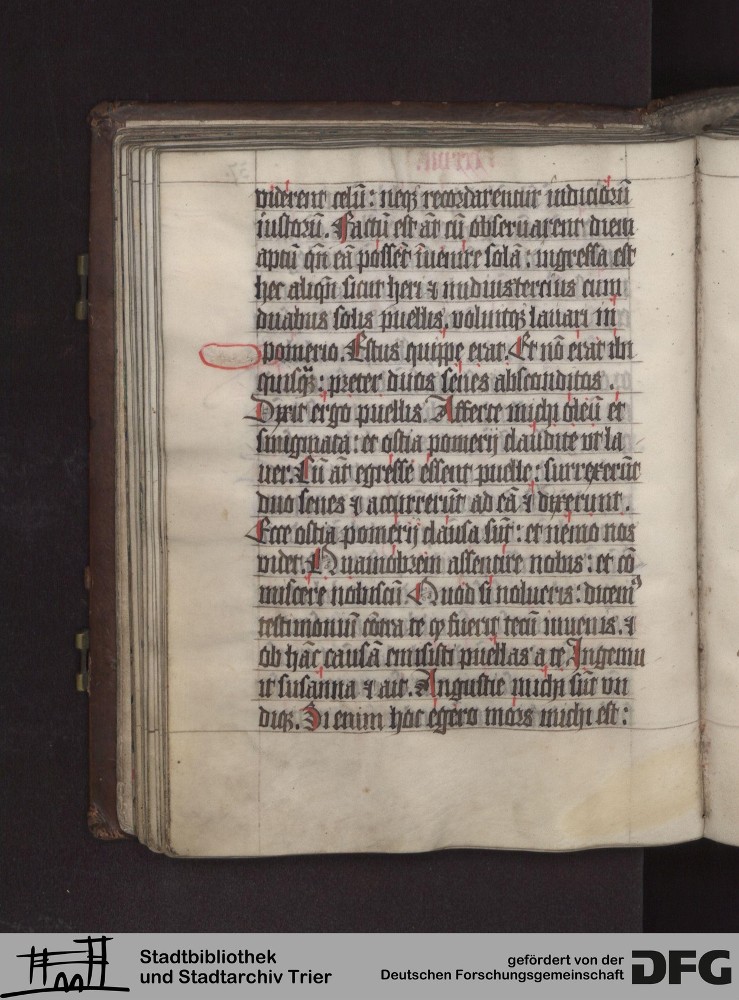 viderent celū: neqꝫ recordarentur iudiciorū
iustorū. Factū est aūt cū obseruarent diem
aptū qn̄ eā possēt īuenire solā: ingressa est
hec aliqn̄ sicut heri ⁊ nudiustercius cum
duabus solis puellis. voluitqꝫ lauari in
pomerio. Estus quippe erat. Et nō erat ibi
quisqᷓꝫ: preter duos senes absconditos.
Dixit ergo puellis. Afferte michi oleū et
smigmata: et ostia pomerij claudite vt la
uer. Cū aūt egresse essent puelle: surrexerūt
duo senes ⁊ accurrerūt ad eā ⁊ dixerunt.
Ecce ostia pomerij clausa sūt: et nemo nos
videt. Quamobrem assentire nobis: et cō
miscere nobiscū. Quod si nolueris: dicemꝰ
testimoniū cōtra te ꝙ fuerit tecū iuuenis. ⁊
ob hāc causā emisisti puellas a te. Ingemu
it susanna ⁊ ait. Angustie michi sūt vn
diqꝫ. Si enim hoc egero mors michi est:
Stadtbibliothek
und Stadtarchiv Trier
gefördert von der
Deutschen Forschungsgemeinschaft
DFG